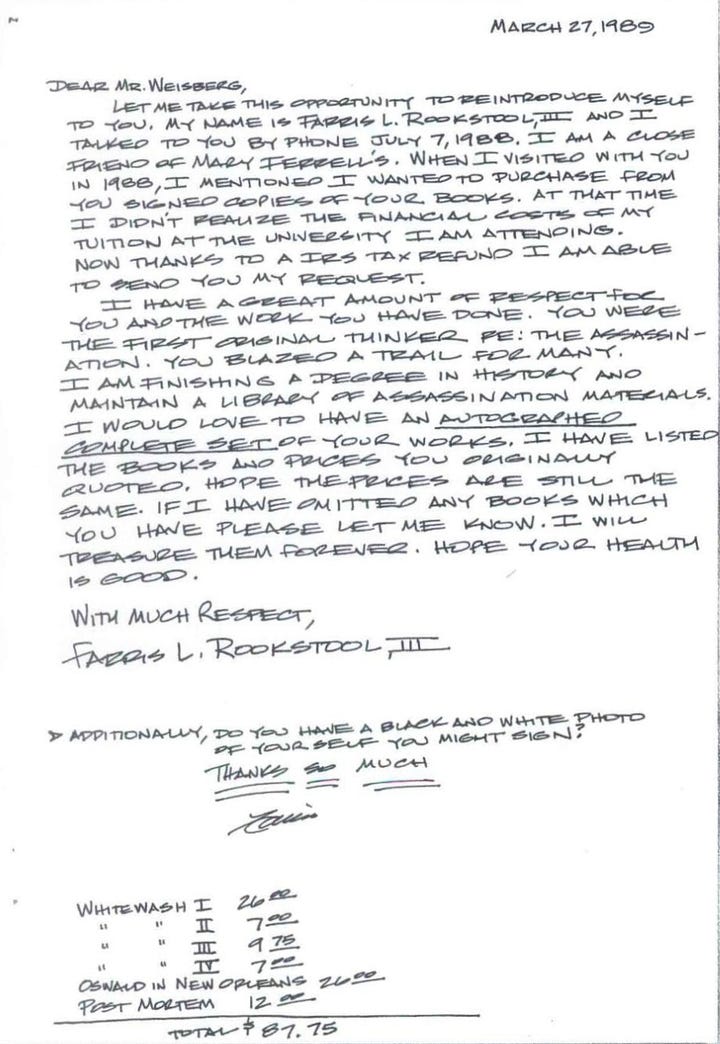 MARCH 27, 1989
DEAR MR. WEISBERG,
LET ME TAKE THIS OPPORTUNITY TO REINTRODUCE MYSELF
TO YOU. MY NAME IS FARRIS L. ROOKSTOOL, III AND I
TALKED TO YOU BY PHONE JULY 7, 1988. I AM A CLOSE
FRIEND OF MARY FERRELL'S. WHEN I VISITED WITH YOU
IN 1988, I MENTIONED I WANTED TO PURCHASE FROM
YOU SIGNED COPIES OF YOUR BOOKS. AT THAT TIME
I DIDN'T REALIZE THE FINANCIAL COSTS OF MY
TUITION AT THE UNIVERSITY I AM ATTENDING.
NOW THANKS TO A IRS TAX REFUND I AM ABLE
TO SEND YOU MY REQUEST.
I HAVE A GREAT AMOUNT OF RESPECT FOR
YOU AND THE WORK YOU HAVE DONE. YOU WERE
THE FIRST ORIGINAL THINKER RE: THE ASSASSIN-
ATION. YOU BLAZED A TRAIL FOR MANY.
I AM FINISHING A DEGREE IN HISTORY AND
MAINTAIN A LIBRARY OF ASSASSINATION MATERIALS.
I WOULD LOVE TO HAVE AN AUTOGRAPHED
COMPLETE SET OF YOUR WORKS. I HAVE LISTED
THE BOOKS AND PRICES YOU ORIGINALLY
QUOTED. HOPE THE PRICES ARE STILL THE
SAME. IF I HAVE OMITTED ANY BOOKS WHICH
YOU HAVE PLEASE LET ME KNOW. I WILL
TREASURE THEM FOREVER. HOPE YOUR HEALTH
IS GOOD.
WITH MUCH RESPECT,
FARRIS L. ROOKSTOOL, III
ADDITIONALLY, DO YOU HAVE A BLACK AND WHITE PHOTO
OF YOUR SELF YOU MIGHT SIGN?
THANKS SO MUCH
Farris
WHITEWASH I 26.00
" " II 7.00
" " III 9.75
" " IV 7.00
OSWALD IN NEW ORLEANS 26.00
POST MORTEM 12.00
TOTAL $ 87.75